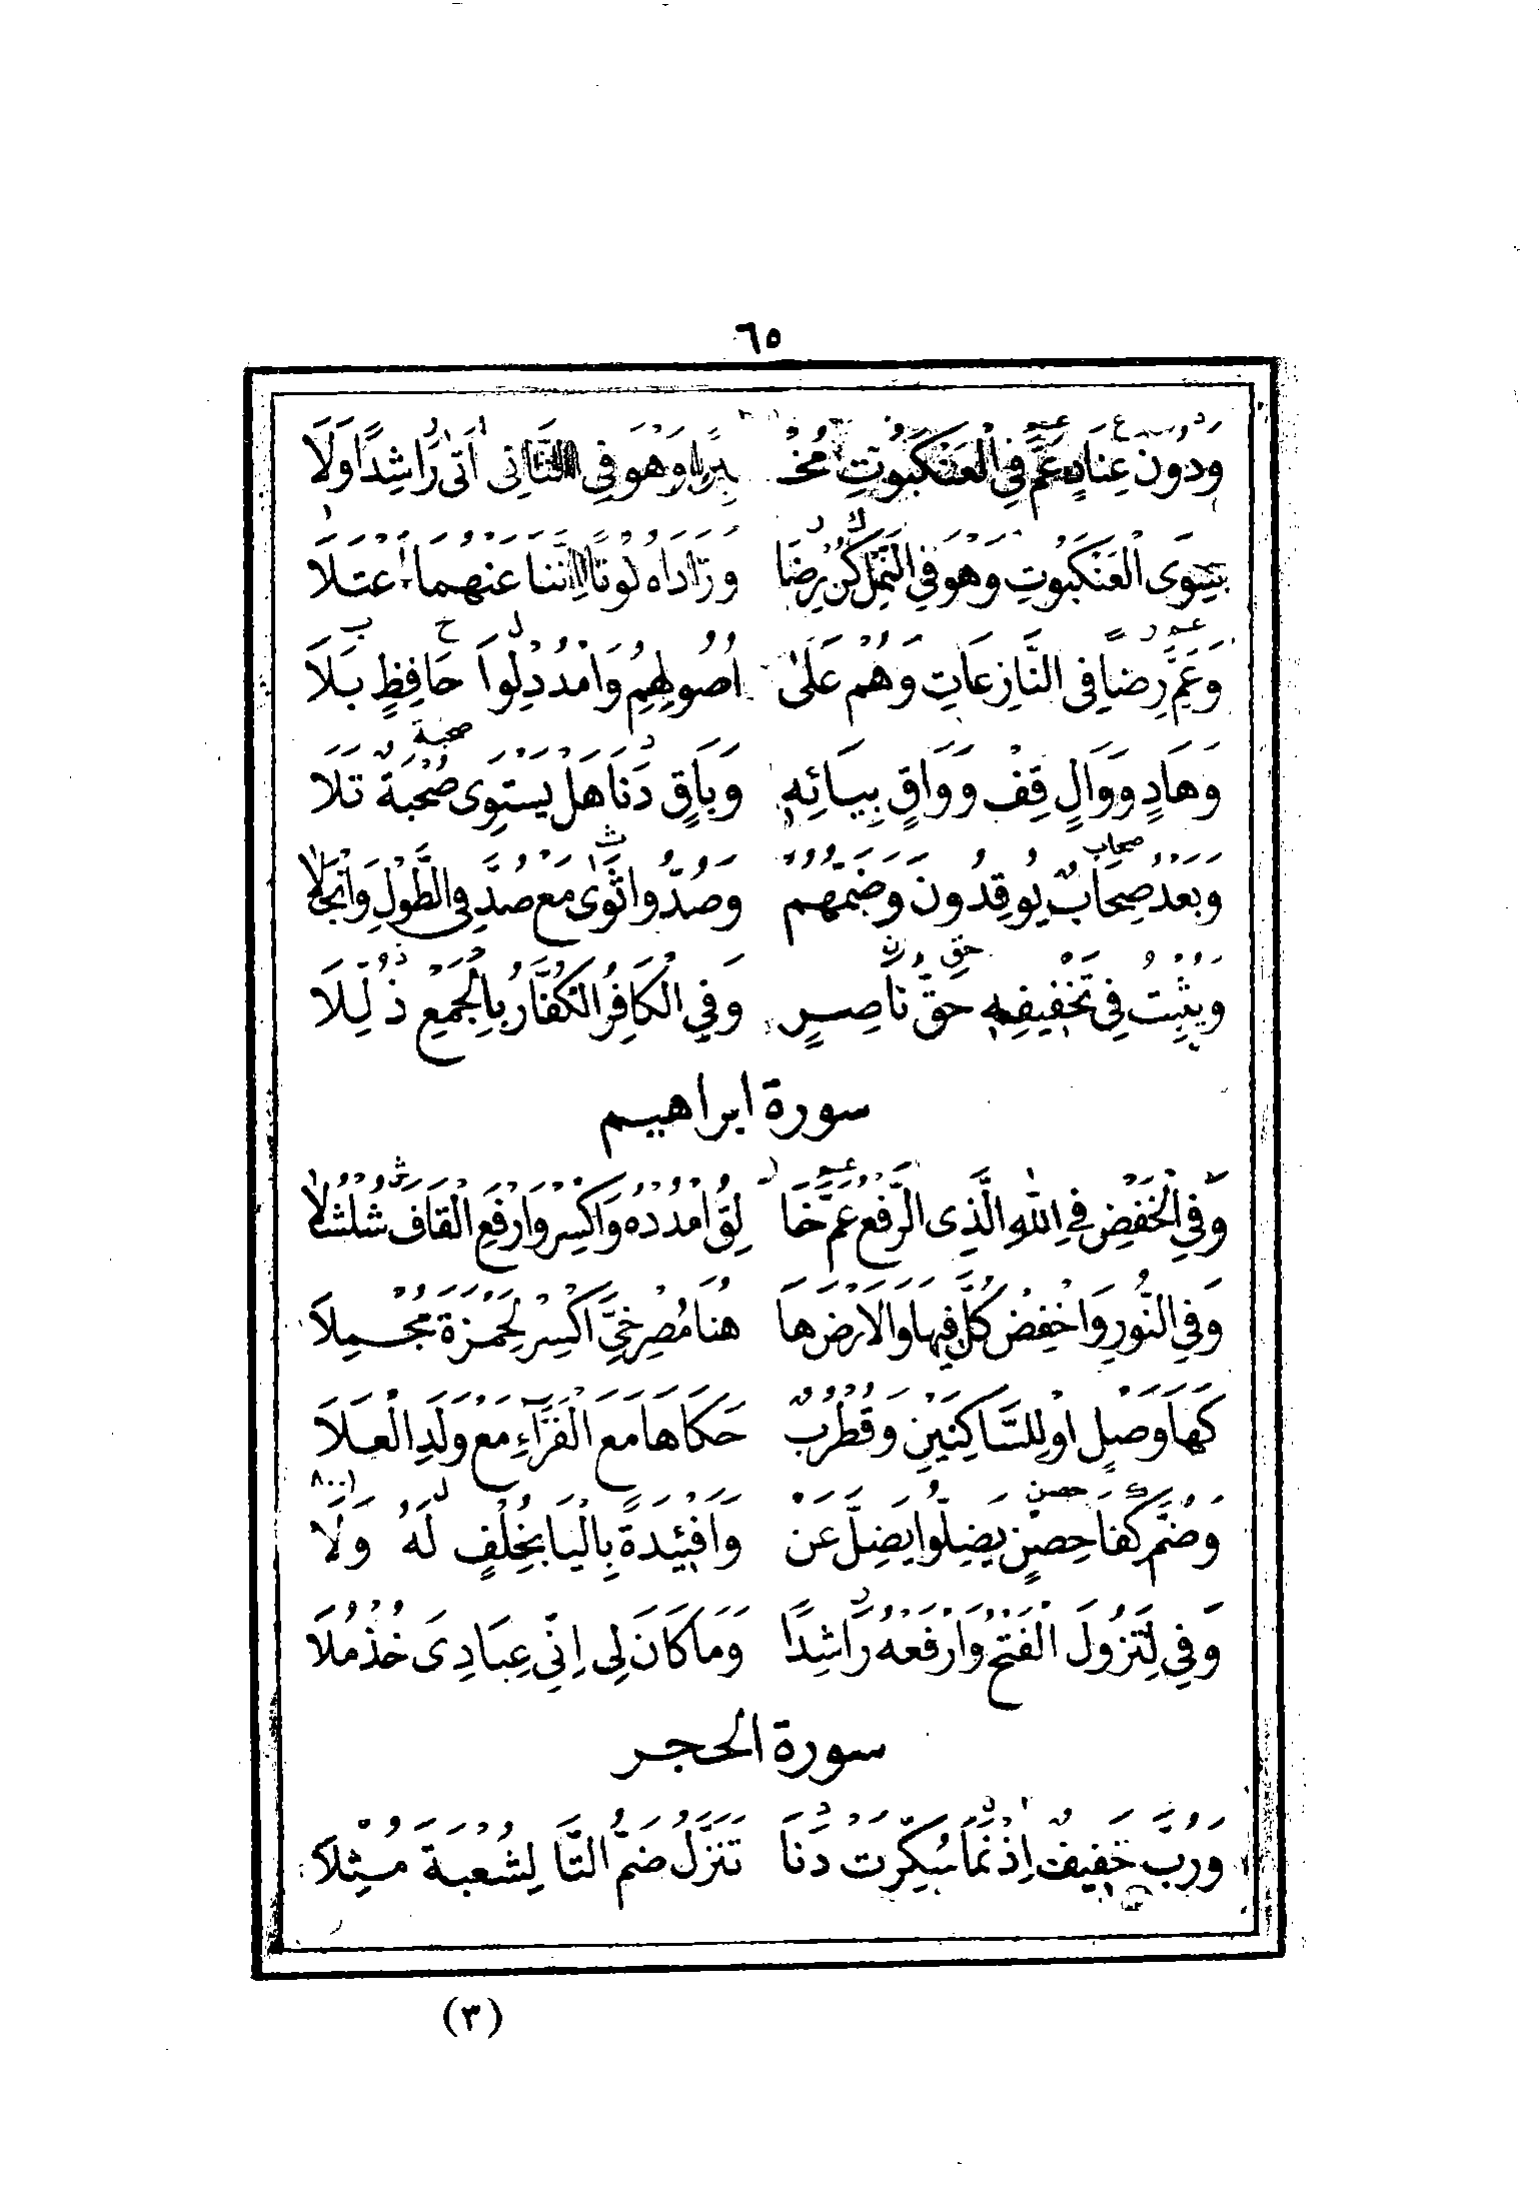 ٦٥
وَدُونَ عِنَادٍ عَمَّ فِي الْعَنْكَبُوتِ مُخْ بِرًا وَهُوَ فِي الثَّانِي أَتَى رَاشِدًا وَلَا
سِوَى الْعَنْكَبُوتِ وَهُوَ فِي النَّمْلِ كُنْ رِضَا وَزَادَاهُ نُونًا إِنَّنَا عَنْهُمَا اعْتَلَا
وَعَمَّ رِضًا فِي النَّازِعَاتِ وَهُمْ عَلَى أُصُولِهِمُ وَامْدُدْ لِوَا حَافِظٍ بَلَا
وَهَادٍ وَوَالٍ قِفْ وَوَاقٍ بِيَائِهِ وَبَاقٍ دَنَا هَلْ يَسْتَوِي صُحْبَةٌ تَلَا
صحبة
وَبَعْدُ صِحَابٌ يُوقِدُونَ وَضَمُّهُمْ وَصُدُّوا ثَوَى مَعْ صُدَّ فِي الطَّوْلِ وَانْجَلَا
صحاب
وَيُثْبِتُ فِي تَخْفِيفِهِ حَقُّ نَاصِرٍ وَفِي الْكَافِرُ الْكُفَّارُ بِالْجَمْعِ ذُلِّلَا
حق
سورة ابراهيم
وَفِي الْخَفْضِ فِي اللهِ الَّذِي الرَّفْعُ عَمَّ خَا لِقُ امْدُدْهُ وَاكْسِرْ وَارْفَعِ الْقَافَ شُلْشُلَا
عم
وَفِي النُّورِ وَاخْفِضْ كُلَّ فِيهَا وَالْارْضَ هَا هُنَا مُصْرِخِيَّ اكْسِرْ لِحَمْزَةَ مُجْمِلَا
كَهَا وَصْلٍ اوْ لِلسَّاكِنَيْنِ وَقُطْرُبٌ حَكَاهَا مَعَ الْفَرَّاءِ مَعْ وَلَدِ الْعَلَا
٨٠٠
وَضُمَّ كِفَا حِصْنٍ يَضِلُّوا يَضِلَّ عَنْ وَأَفْئِيدَةً بِالْيَا بِخُلْفٍ لَهُ وَلَا
حصن
وَفِي لِتَزُولَ الْفَتْحُ وَارْفَعْهُ رَاشِدًا وَمَا كَانَ لِي إِنِّي عِبَادِيَ خُذْ مُلَا
سورة الحجر
وَرُبَّ خَفِيفٌ إِذْ نَمَا سُكِّرَتْ دَنَا تَنَزَّلُ ضَمُّ التَّا لِشُعْبَةَ مُثِّلَا
(٣)